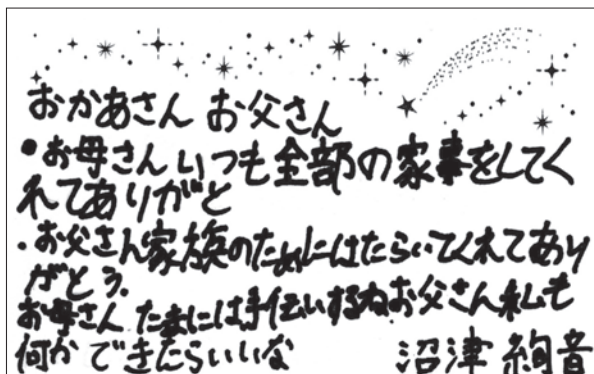 おかあさん お父さん
・お母さんいつも全部の家事をしてく
れてありがと
・お父さん家族のためにはたらいてくれてあり
がとう。
お母さん たまには手伝いするねお父さん私も
何かできたらいいな 沼津 絢音